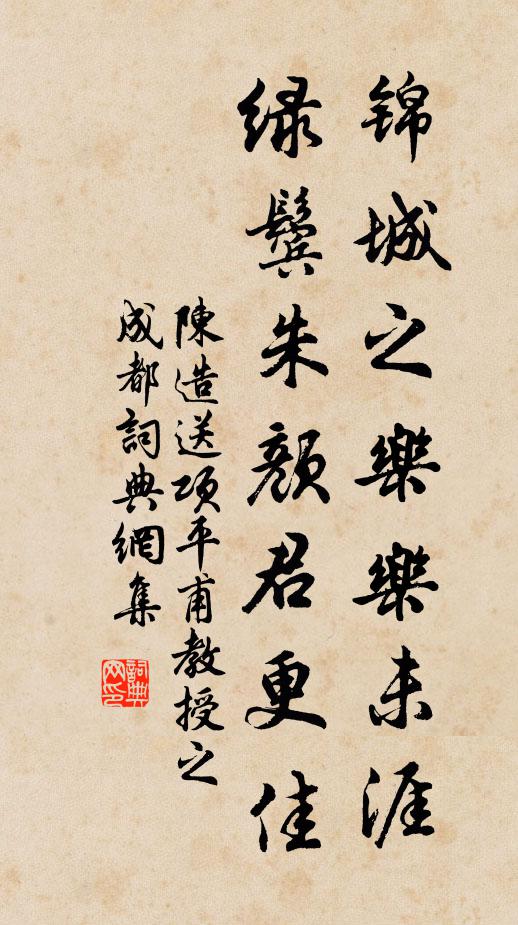 锦城之樂樂未涯
绿鬓朱颜君更佳
陳造送项平甫教授之
成都詞典網集
詞典网印